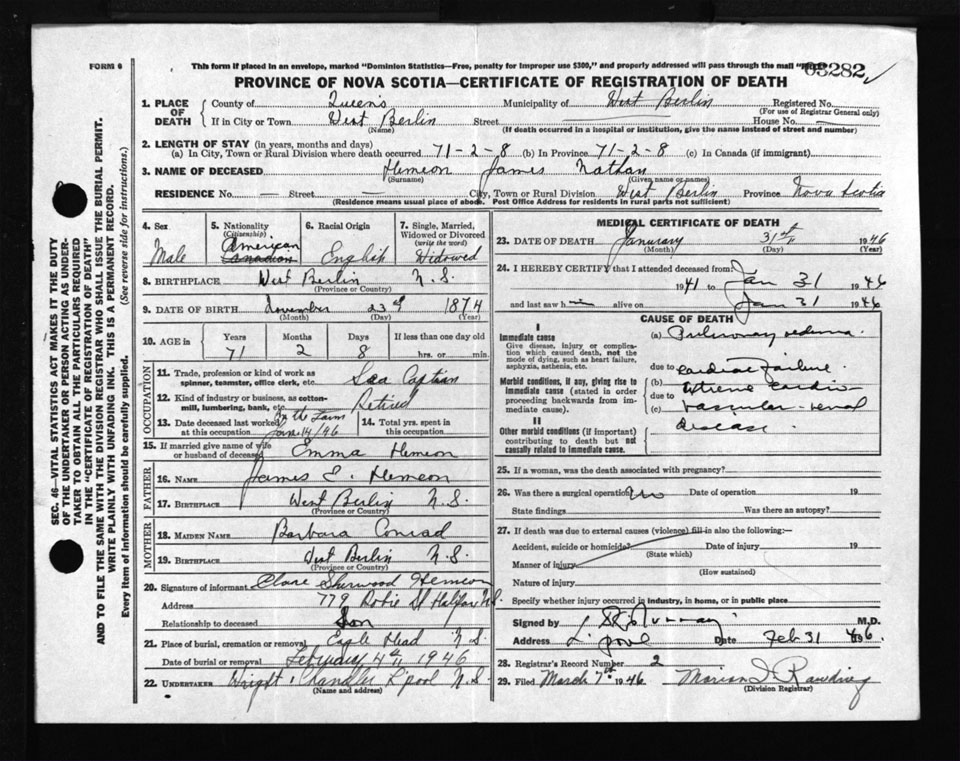 FORM 6
This form if placed in an envelope, marked "Dominion Statistics—Free, penalty for improper use $300," and properly addressed will pass through the mail
03282
PROVINCE OF NOVA SCOTIA—CERTIFICATE OF REGISTRATION OF DEATH
SEC. 46—VITAL STATISTICS ACT MAKES IT THE DUTY
OF THE UNDERTAKER OR PERSON ACTING AS UNDER-
TAKER TO OBTAIN ALL THE PARTICULARS REQUIRED
IN THE "CERTIFICATE OF REGISTRATION OF DEATH"
AND TO FILE THE SAME WITH THE DIVISION REGISTRAR WHO SHALL ISSUE THE BURIAL PERMIT.
WRITE PLAINLY WITH UNFADING INK. THIS IS A PERMANENT RECORD.
Every item of information should be carefully supplied. (See reverse side for instructions.)
1. PLACE OF DEATH County of Queens Municipality of West Berlin Registered No.
(For use of Registrar General only)
If in City or Town West Berlin Street House No. —
(Name) (If death occurred in a hospital or institution, give the name instead of street and number)
2. LENGTH OF STAY (in years, months and days)
(a) In City, Town or Rural Division where death occurred 71-2-8 (b) In Province 71-2-8 (c) In Canada (if immigrant)
3. NAME OF DECEASED Hemeon James Nathan
(Surname) (Given name or names)
RESIDENCE No. — Street — City, Town or Rural Division West Berlin Province Nova Scotia
(Residence means usual place of abode. Post Office Address for residents in rural parts not sufficient)
4. Sex Male
5. Nationality (Citizenship) American Canadian
6. Racial Origin English
7. Single, Married, Widowed or Divorced (write the word) Widowed
8. BIRTHPLACE West Berlin N.S.
(Province or Country)
9. DATE OF BIRTH November 23rd 1874
(Month) (Day) (Year)
10. AGE in Years Months Days If less than one day old
71 2 8 hrs. or min.
OCCUPATION
11. Trade, profession or kind of work as spinner, teamster, office clerk, etc. Sea Captian
12. Kind of industry or business, as cotton-mill, lumbering, bank, etc. Retired
13. Date deceased last worked at this occupation On the Farm Jan 14/46
14. Total yrs. spent in this occupation
15. If married give name of wife or husband of deceased Emma Hemeon
FATHER
16. NAME James E. Hemeon
17. BIRTHPLACE West Berlin N.S.
(Province or Country)
MOTHER
18. MAIDEN NAME Barbara Conrad
19. BIRTHPLACE West Berlin N.S.
(Province or Country)
20. Signature of informant Clare Sherwood Hemeon
Address 779 Robie St Halifax N.S.
Relationship to deceased Son
21. Place of burial, cremation or removal Eagle Head N.S.
Date of burial or removal February 4th 1946
22. UNDERTAKER Wright & Chandler L'pool N.S.
(Name and address)
MEDICAL CERTIFICATE OF DEATH
23. DATE OF DEATH Janurary 31st 1946
(Month) (Day) (Year)
24. I HEREBY CERTIFY that I attended deceased from:
1941 to Jan 31 1946
and last saw him alive on Jan 31 1946
CAUSE OF DEATH
I
Immediate cause
Give disease, injury or complication which caused death, not the mode of dying, such as heart failure, asphyxia, asthenia, etc.
Morbid conditions, if any, giving rise to immediate cause (stated in order proceeding backwards from immediate cause).
II
Other morbid conditions (if important) contributing to death but not causally related to immediate cause.
(a) Pulmonary oedema
due to cardiac failure
(b)
due to
(c) vascular-renal
disease.
25. If a woman, was the death associated with pregnancy?
26. Was there a surgical operation? no Date of operation 19
State findings Was there an autopsy?
27. If death was due to external causes (violence) fill in also the following:—
Accident, suicide or homicide? Date of injury 19
(State which)
Manner of injury
(How sustained)
Nature of injury
Specify whether injury occurred in industry, in home, or in public place
Signed by Murray M.D.
Address L'pool Date Feb 31 1946.
28. Registrar's Record Number 2
29. Filed March 7th 1946
(Division Registrar)